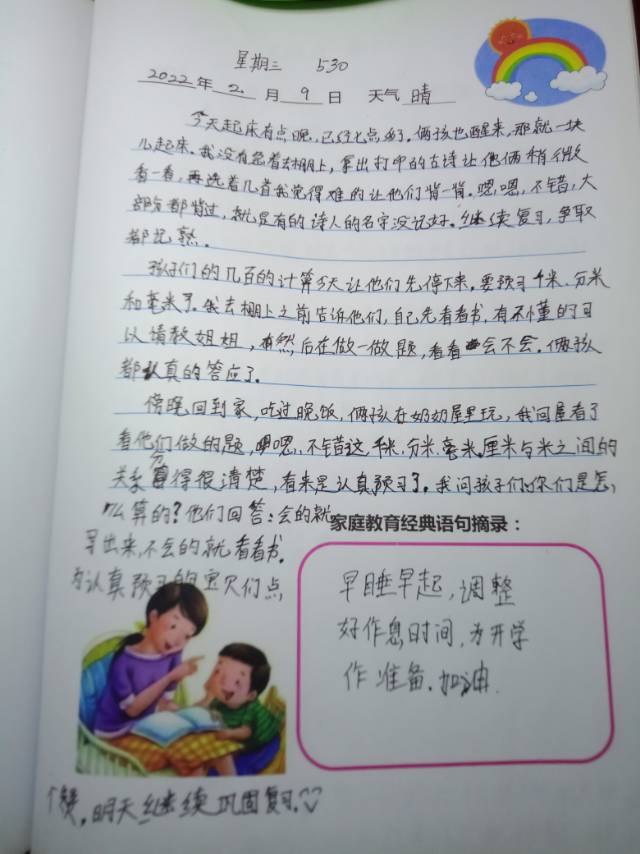 星期三 530
2022年2月9日 天气晴
今天起床有点晚,已经七点多了。俩孩也醒来,那就一块
儿起床。我没有急着去棚上,拿出打印的古诗让他俩稍微
看一看,再选着几首我觉得难的让他们背一背。嗯,嗯,不错,大
部分都背过,就是有的诗人的名字没记好。继续复习,争取
都记熟。
孩子们的几百的计算今天让他们先停下来。要预习千米、分米
和毫米了。我去棚上之前告诉他们,自己先看看书,有不懂的可
以请教姐姐,然后在做一做题,看看会不会。俩孩
都认真的答应了。
傍晚回到家,吃过晚饭,俩孩在奶奶屋里玩,我回屋看了
看他们做的题,嗯,不错这,千米,分米,毫米,厘米与米之间的
关系分得很清楚,看来是认真预习了。我问孩子们你们是怎,
么算的?他们回答:会的就
写出来,不会的就看看书。
为认真预习的宝贝们点
个赞,明天继续巩固复习。♡
家庭教育经典语句摘录:
早睡早起,调整
好作息时间,为开学
作准备.加油.